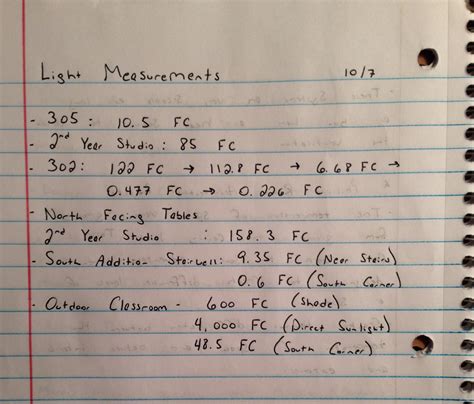 Light Measurements 10/7
- 305: 10.5 FC
- 2nd Year Studio: 85 FC
- 302: 122 FC → 112.8 FC → 6.68 FC →
0.477 FC → 0.226 FC
- North Facing Tables
2nd Year Studio : 158.3 FC
- South Addition Stairwell: 9.35 FC (Near Stairs)
0.6 FC (South Corner)
- Outdoor Classroom - 600 FC (Shade)
4,000 FC (Direct Sunlight)
48.5 FC (South Corner)